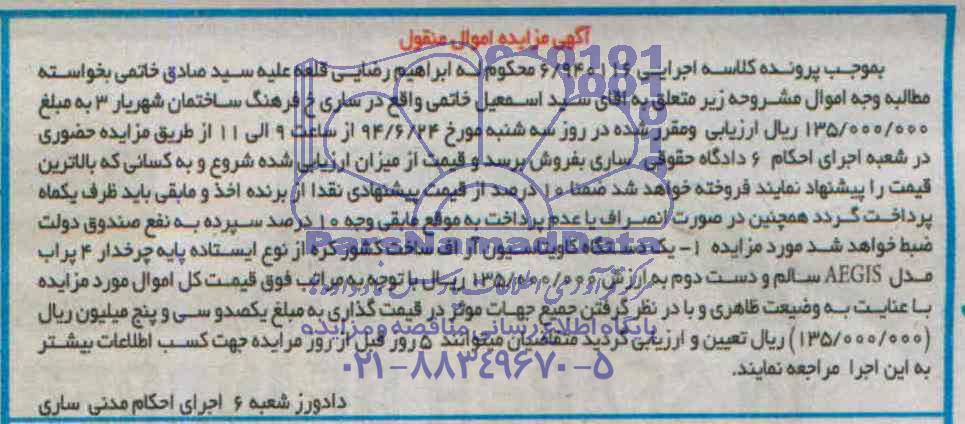 آگهی مزایده اموال منقول
بموجب پرونده کلاسه اجرایی ۶/۹۴۰۱۱۶ محکوم له ابراهیم رضایی قلعه علیه سید صادق خاتمی بخواسته
مطالبه وجه اموال مشروحه زیر متعلق به آقای سید اسمعیل خاتمی واقع در ساری خ فرهنگ ساختمان شهریار ۳ به مبلغ
۱۳۵/۰۰۰/۰۰۰ ریال ارزیابی ومقرر شده در روز سه شنبه مورخ ۹۴/۶/۲۴ از ساعت ۹ الی ۱۱ از طریق مزایده حضوری
در شعبه اجرای احکام ۶ دادگاه حقوقی ساری بفروش برسد و قیمت از میزان ارزیابی شده شروع و به کسانی که بالاترین
قیمت را پیشنهاد نمایند فروخته خواهد شد ضمنا ۱۰ درصد از قیمت پیشنهادی نقدا از برنده اخذ و مابقی باید ظرف یکماه
پرداخت گردد همچنین در صورت انصراف یا عدم پرداخت به موقع مابقی وجه ۱۰ درصد سپرده به نفع صندوق دولت
ضبط خواهد شد مورد مزایده ۱- یک دستگاه کاویتاسیون آر اف ساخت کشور کره از نوع ایستاده پایه چرخدار ۴ پراب
مدل AEGIS سالم و دست دوم به ارزش ۱۳۵/۰۰۰/۰۰۰ ریال با توجه به مراتب فوق قیمت کل اموال مورد مزایده
با عنایت به وضیعت ظاهری و با در نظر گرفتن جمیع جهات موثر در قیمت گذاری به مبلغ یکصدو سی و پنج میلیون ریال
(۱۳۵/۰۰۰/۰۰۰) ریال تعیین و ارزیابی گردید متقاضیان میتوانند ۵ روز قبل از روز مرایده جهت کسب اطلاعات بیشتر
به این اجرا مراجعه نمایند.
دادورز شعبه ۶ اجرای احکام مدنی ساری
پایگاه اطلاع رسانی مناقصه و مزایده
۰۲۱-۸۸۳۴۹۶۷۰-۵